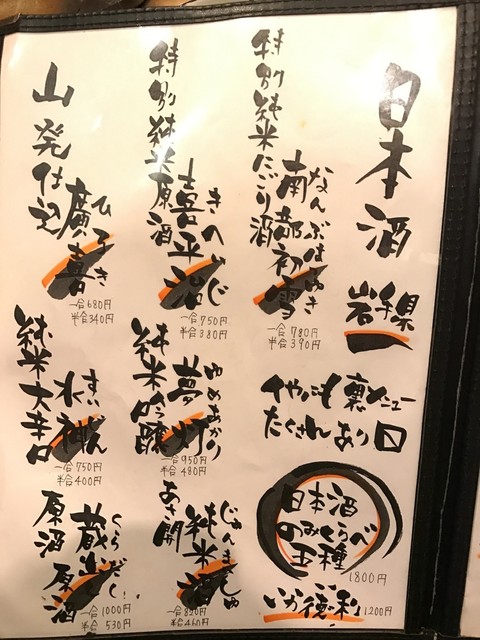 日本酒
岩手県
他にも裏メニュー
たくさんあり口
日本酒
のみくらべ
五種
1800円
いか徳利
1200円
特別純米にごり酒
なんぶはつゆき
南部初雪
一合 780円
半合 390円
特別純米原酒
きへいじ
喜平治
一合 750円
半合 380円
純米吟醸
ゆめあかり
夢灯
一合 950円
半合 480円
あさ開
じゅんまいしゅ
純米酒
一合 820円
半合 460円
山廃仕込
ひろき
廣喜
一合 680円
半合 340円
純米大辛口
すいじん
水神
一合 750円
半合 400円
原酒
くらだし
蔵出し原酒
一合 1000円
半合 530円